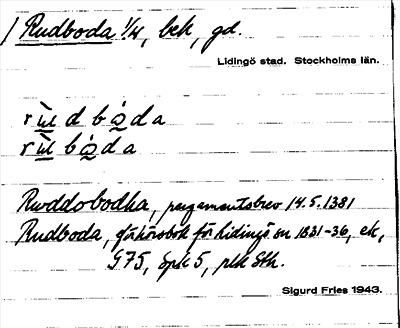 / Rudboda 1/4, bek, gd.
Lidingö stad. Stockholms län.
r ù̱l d b ó̰ d a
r ù̱l b ó̰ d a
Rwddobodha, pergamentsbrev 14.5.1381
Rudboda, förhörsbok för Lidingö sn 1831-36, ek,
G75, Spk 5, plk Sth.
Sigurd Fries 1943.